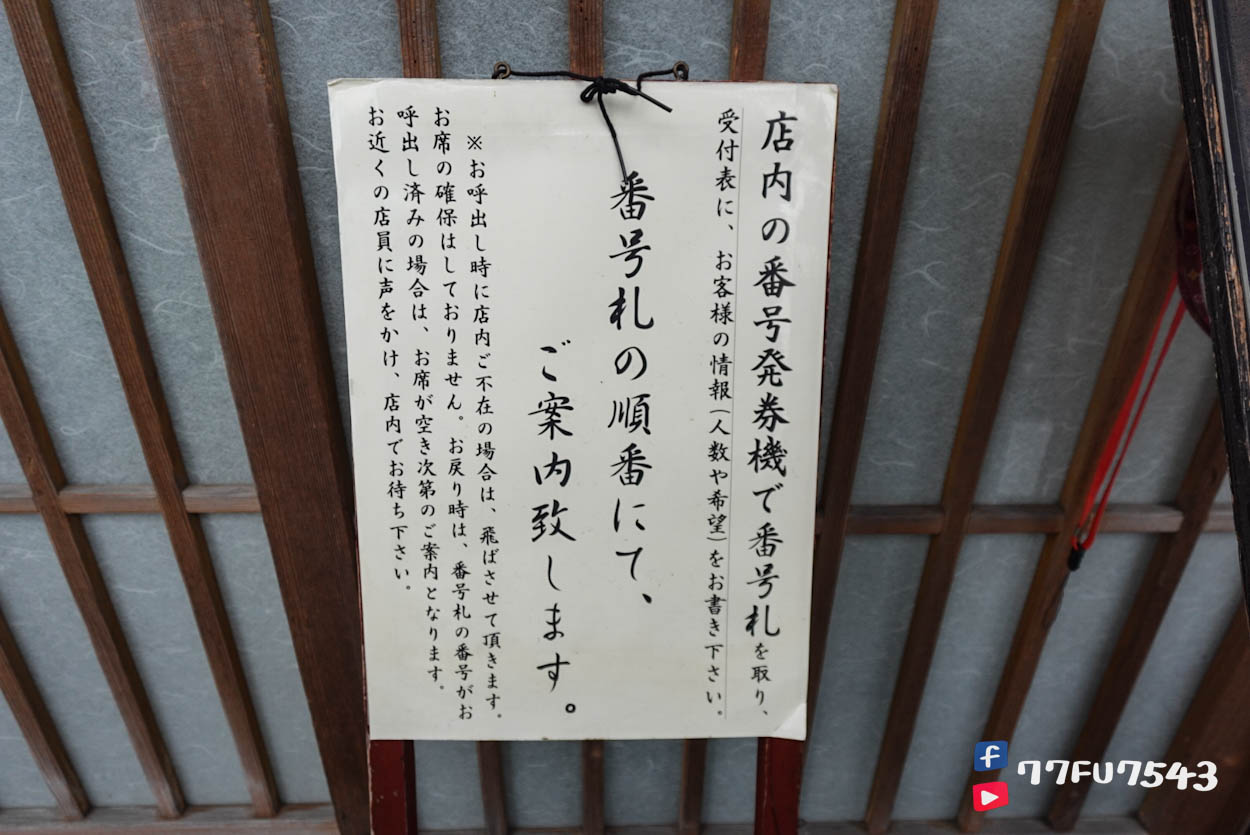 店内の番号発券機で番号札を取り、
受付表に、お客様の情報(人数や希望)をお書き下さい。
番号札の順番にて、
ご案内致します。
※お呼出し時に店内ご不在の場合は、飛ばさせて頂きます。
お席の確保はしておりません。お戻り時は、番号札の番号がお
呼出し済みの場合は、お席が空き次第のご案内となります。
お近くの店員に声をかけ、店内でお待ち下さい。
77FU7543